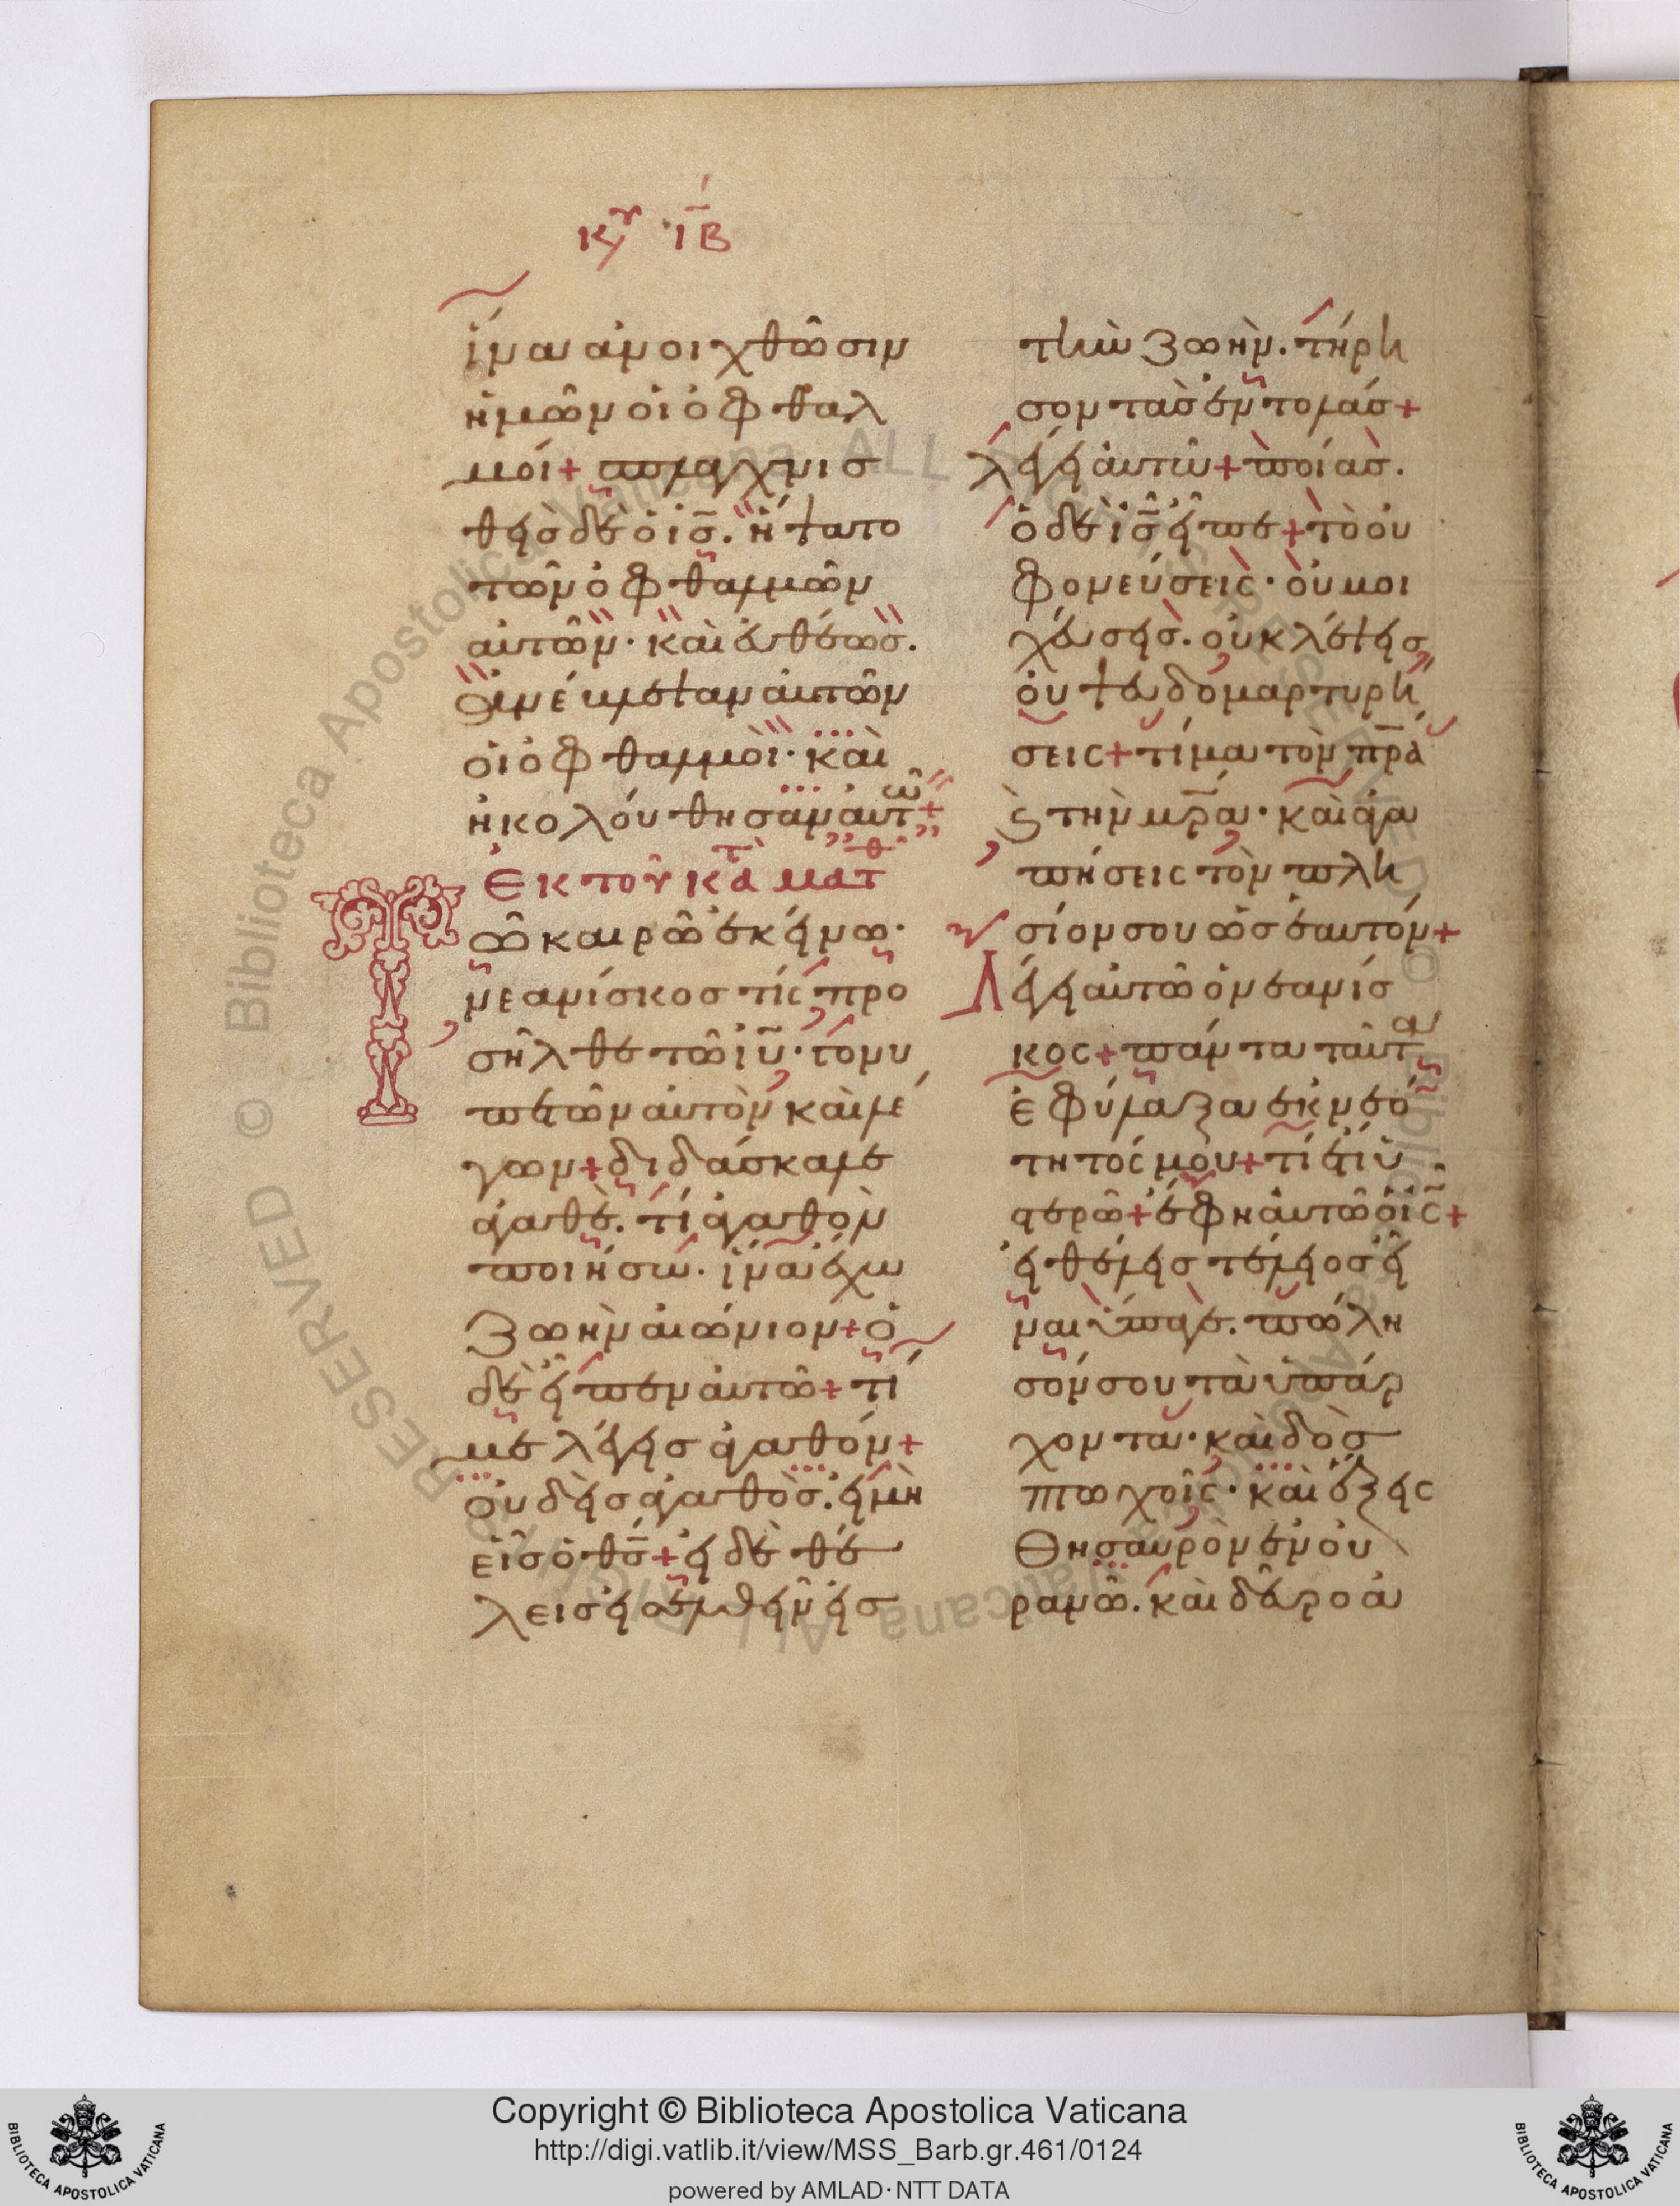 κυ ΙΒ
ἵνα ἀνοιχθῶσιν
ἡμῶν οἱ ὀφθαλ
μοί + σπλαγχνισ
θεὶσ δὲ ὁ ισ. ἥψατο
τῶν ὀφθαλμῶν
αὐτῶν · καὶ εὐθέωσ.
ἀνέβλεψαν αὐτῶν
οἱ ὀφθαλμοὶ · καὶ
ἠκολούθησαν αὐτω +
Εκ του κατὰ ματθ
Τῶ καιρῶ ἐκείνω ·
νεανίσκοσ τίς προ
σῆλθε τῶ ιυ · γονυ
πετῶν αὐτὸν καὶ λέ
γων + διδάσκαλε
ἀγαθὲ. τί ἀγαθὸν
ποιήσω. ἵνα ἔχω
ζωὴν αἰώνιον + ὁ
δὲ εἶπεν αὐτῶ + τί
με λέγεισ ἀγαθόν +
οὐδεὶσ ἀγαθὸσ. εἰ μὴ
εἷσ ὁ θσ + εἰ δὲ θέ
λεισ εἰσελθεῖν εἰσ
τὴν ζωὴν. τήρη
σον τὰσ ἐντολάσ +
λέγει αὐτῶ + ποίασ.
ὁ δὲ ισ εἶπε + τὸ οὐ
φονεύσεις · οὐ μοι
χεύσεισ. οὐ κλέψεισ
οὐ ψευδομαρτυρή
σεις + τίμα τὸν πρα
ϛ τὴν μρα · καὶ ἀγα
πήσεις τὸν πλη
σίον σου ὡσ ἑαυτόν +
Λέγει αὐτῶ ὁ νεανίσ
κος + πάντα ταῦτα
ἐφύλαξα ἐκ νεό
τητός μου + τί ἔτι ὑ
στερῶ + ἔφη αὐτῶ ὁ ις +
εἰ θέλεισ τέλειοσ εἶ
ναι ὕπαγε. πώλη
σόν σου τὰ ὑπάρ
χοντα · καὶ δὸσ
πτωχοῖς · καὶ ἕξεις
θησαυρὸν ἐν οὐ
ρανῶ. καὶ δεῦρο ἀ
Copyright © Biblioteca Apostolica Vaticana
http://digi.vatlib.it/view/MSS_Barb.gr.461/0124
powered by AMLAD·NTT DATA